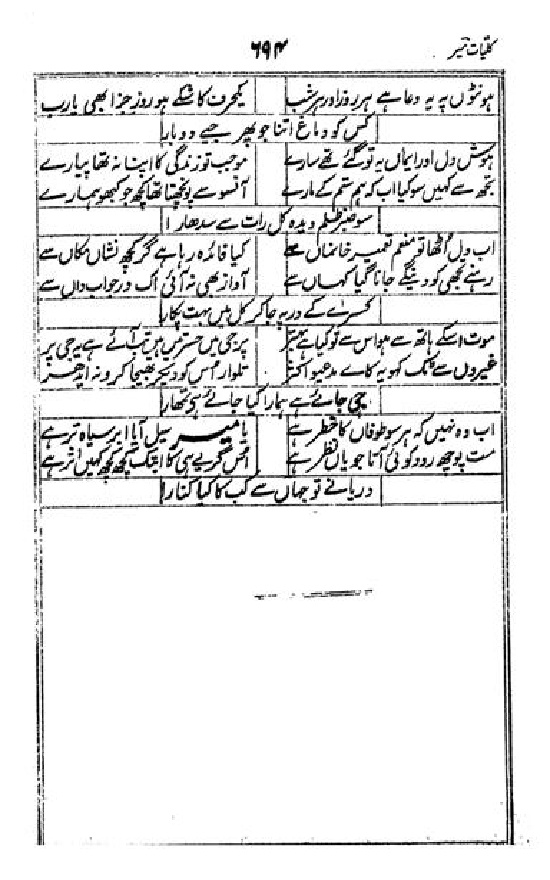 کلیات میر
۶۹۴
ہونٹوں پہ یہ دعا ہے ہر روز اور ہر شب
یکحرف کاشکے ہو روز جزا بھی یارب
کس کو دماغ اتنا جو پھر جیے دوبارا
ہوش دل اور ایماں یہ تو گئے تھے سارے
موجب تو زندگی کا اپنا نہ تھا پیارے
تجھ سے کہیں سو کیا اب کہ ہم ستم کے مارے
آنسو سے پونچھتا تھا کچھ جو کبھو ہمارے
سو صبر ظلم دیدہ کل رات سے سدھارا
اب دل اٹھا تو منعم تعمیر خانماں سے
کیا فائدہ رہا ہے گر کچھ نشاں مکاں سے
رہنے بھی کو دینگے جانا گیا کہاں سے
آواز بھی نہ آئی اک در جواب داں سے
کسرےٰ کے در پہ جا کر کل میں بہت پکارا
موت اسکے ہاتھ سے ہو اس سے تو کیا ہے بہتر
پر جی میں حسرتیں ہیں تب آئے ہے یہ جی پر
غیروں سے ٹک کہو یہ کاے مدعیو اکثر
تلوار اس کو دیکر بھیجا کرو نہ ایدھر
جی جائے ہے ہمارا کیا جائے ہے تمھارا
اب وہ نہیں کہ ہر سو طوفاں کا خطر ہے
یا میر سیل آیا ابر سیاہ تر ہے
مت پوچھ رود کوئی آتا جو یاں نظر ہے
اس گریے ہی کا ابتک کچھ کچھ کہیں اثر ہے
دریا نے تو جہاں سے کب کا کیا کنارا